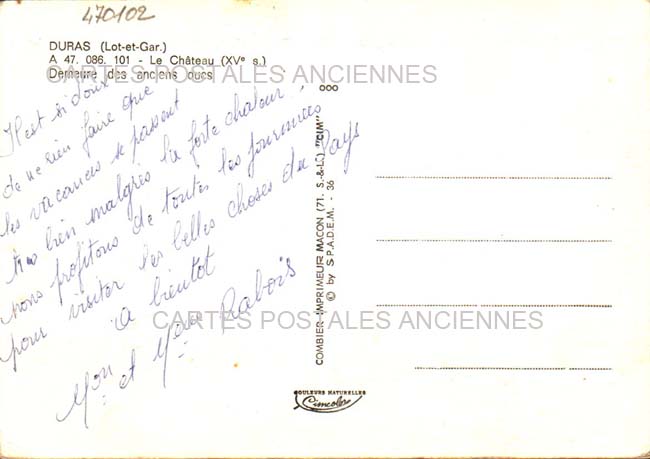 470102
DURAS (Lot-et-Gar.)
A 47. 086. 101 - Le Château (XVe s.)
Demeure des anciens ducs
CARTES POSTALES ANCIENNES
Il est si doux
de ne rien faire que
les vacances se passent
très bien malgrès la forte chaleur,
nous profitons de toutes les journées
pour visiter les belles choses du Pays
A bientôt
Mon et Mme Rabois
CARTES POSTALES ANCIENNES
COMBIER IMPRIMEUR MACON (71. S.-&-L.) "CIM"
© by S.P.A.D.E.M. - 36
COULEURS NATURELLES
Cimcolor